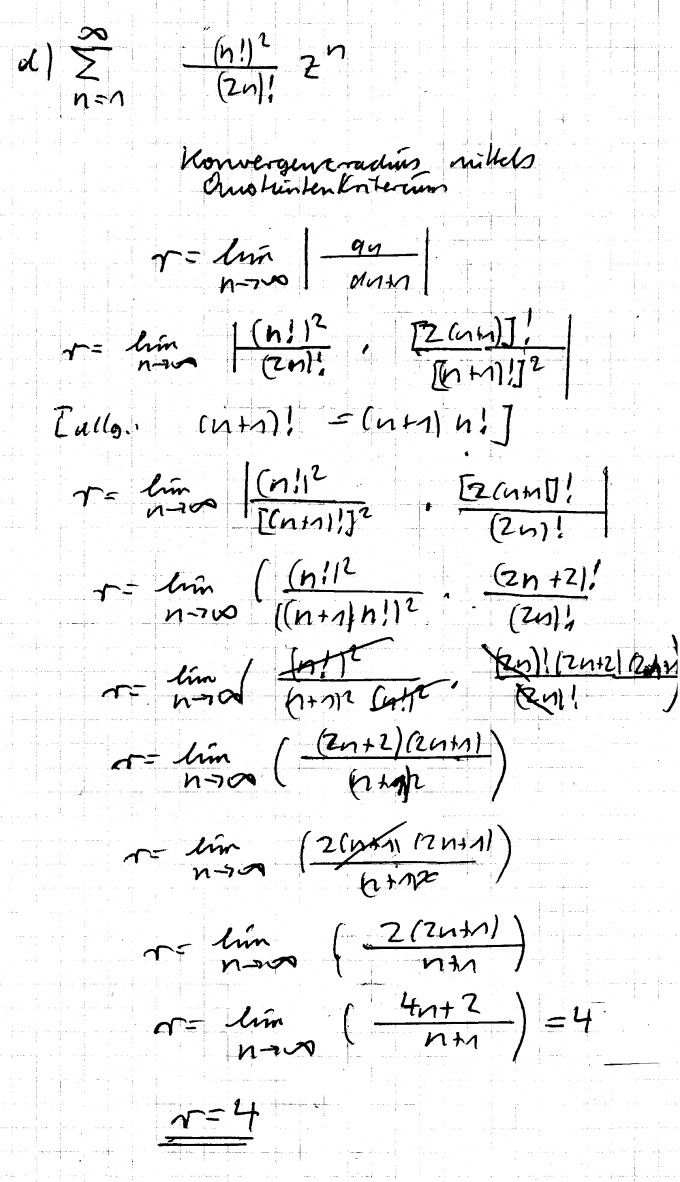 d) ∑_{n=1}^{∞} (n!)²/(2n)! zⁿ
Konvergenzradius mittels
Quotientenkriterium
r = lim_{n→∞} |an/an+1|
r = lim_{n→∞} |(n!)²/(2n)! · [2(n+1)]!/[(n+1)!]²|
[allg.: (n+1)! = (n+1) n!]
r = lim_{n→∞} |(n!)²/[(n+1)!]² · [2(n+1)]!/(2n)!|
r = lim_{n→∞} ((n!)²/((n+1) n!)² · (2n+2)!/(2n)!
r = lim_{n→∞} ((n!)²/(n+1)² (n!)² · (2n)! (2n+2) (2n+1)/(2n)!)
r = lim_{n→∞} ((2n+2)(2n+1)/(n+1)²)
r = lim_{n→∞} (2(n+1) (2n+1)/(n+1)²)
r = lim_{n→∞} (2(2n+1)/n+1)
r = lim_{n→∞} (4n+2/n+1) = 4
r = 4